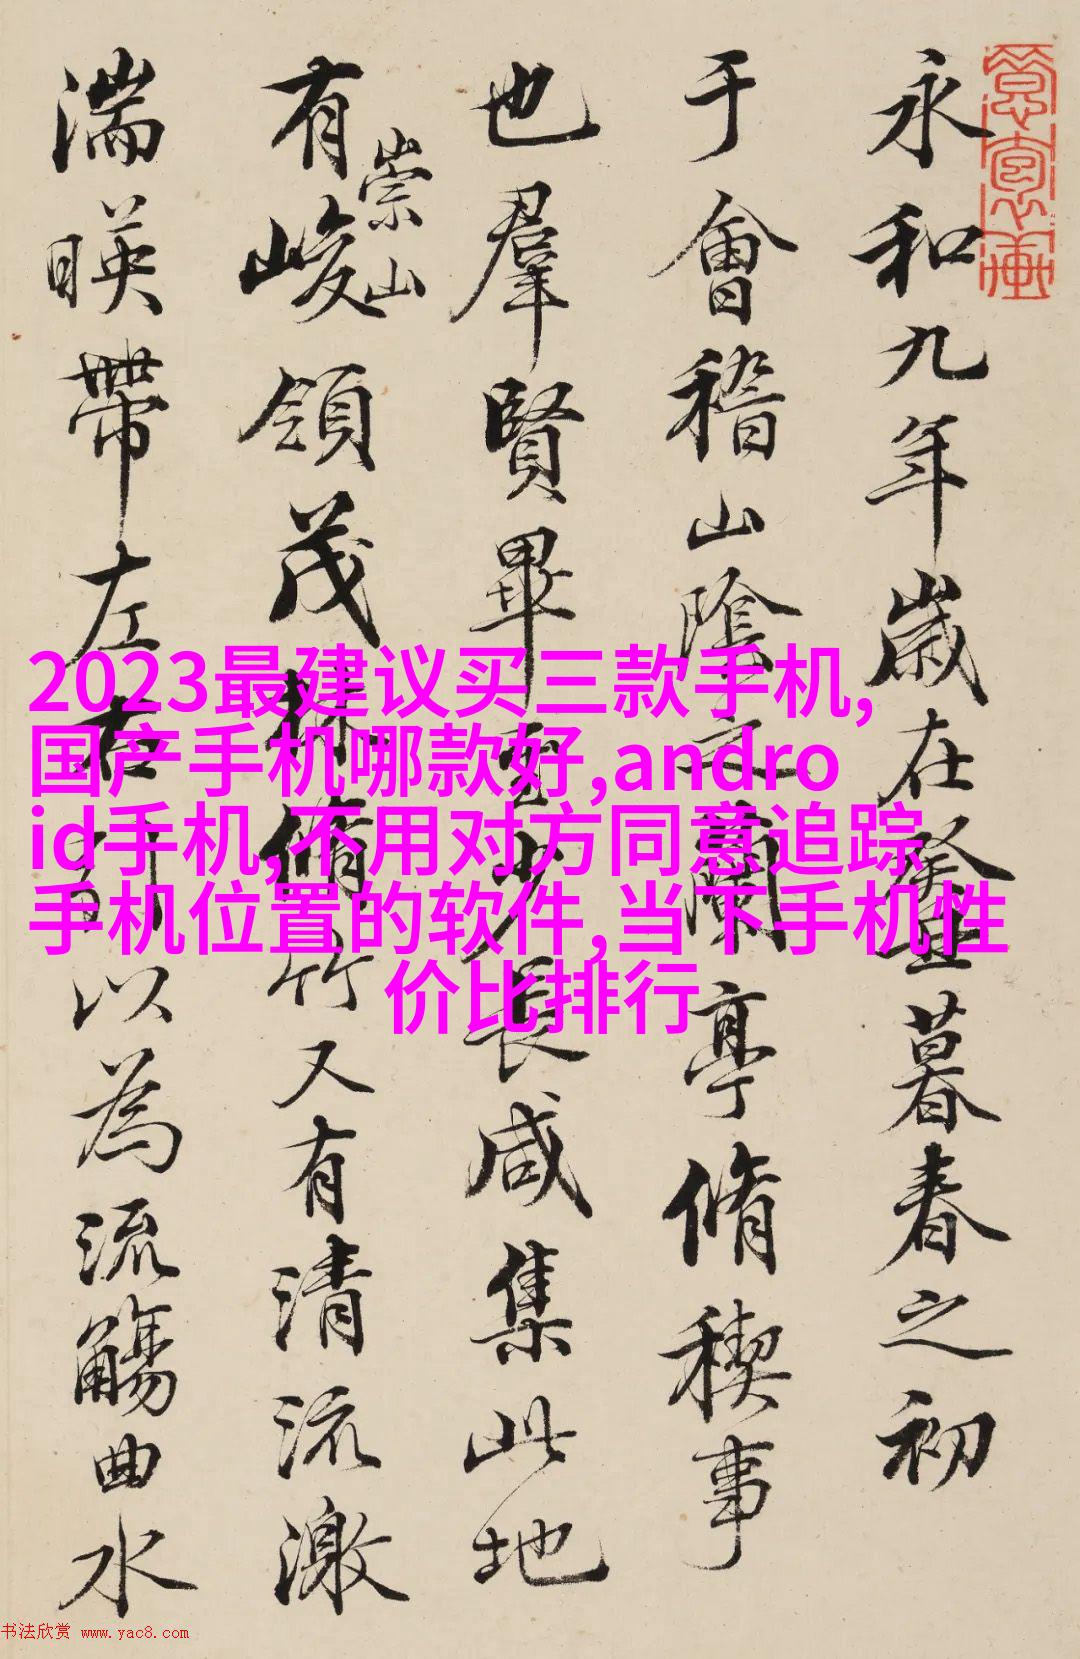 永和九年歲在癸丑暮春之初
于會稽山陰之蘭亭脩稧事
也羣賢畢至少長咸集此地
有崇山峻領茂林脩竹又有清流激
湍暎帶左右引以為流觴曲水
2023最建议买三款手机,
国产手机哪款好,andro
id手机,不用对方同意追踪
手机位置的软件,当下手机性
价比排行
书法欣赏 www.yac8.com